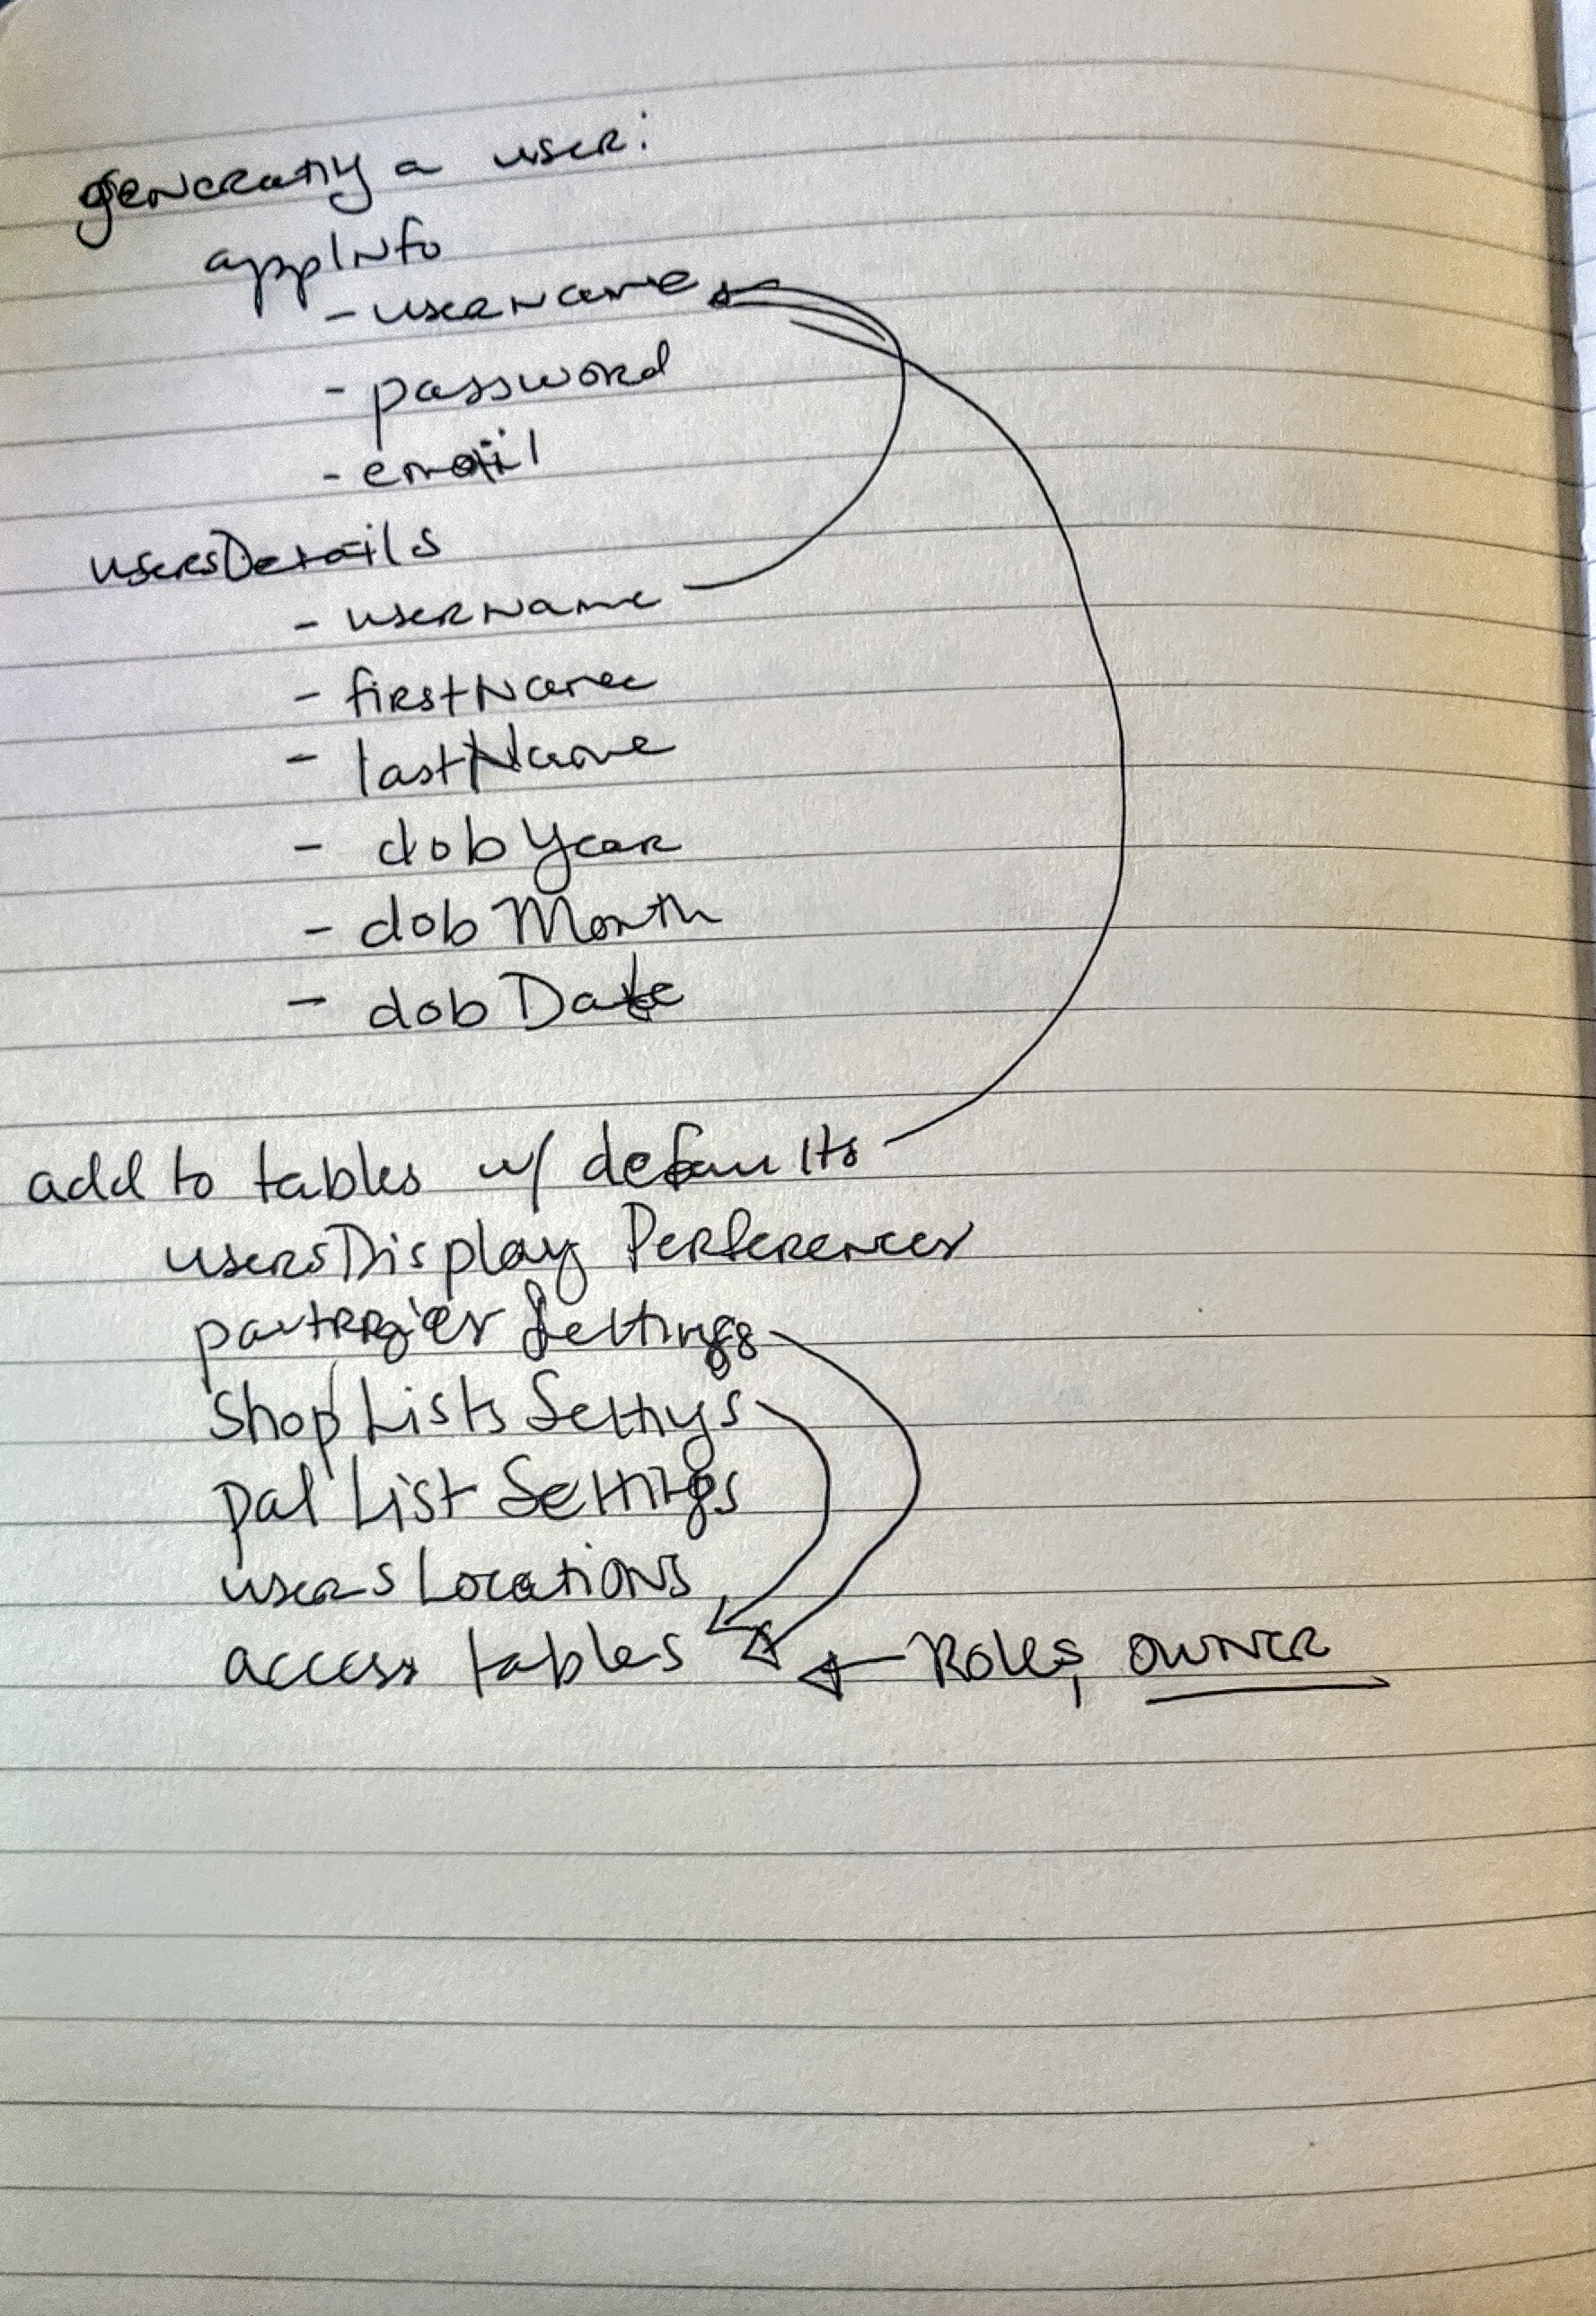 generating a user:
appInfo
- userName
- password
- email
usersDetails
- userName
- firstName
- lastName
- dobYear
- dobMonth
- dobDate
add to tables w/ defaults
usersDisplay Perferences
Settings
ShopListsSettings
PalListSettings
usersLocations
access tables ← Roles, owner